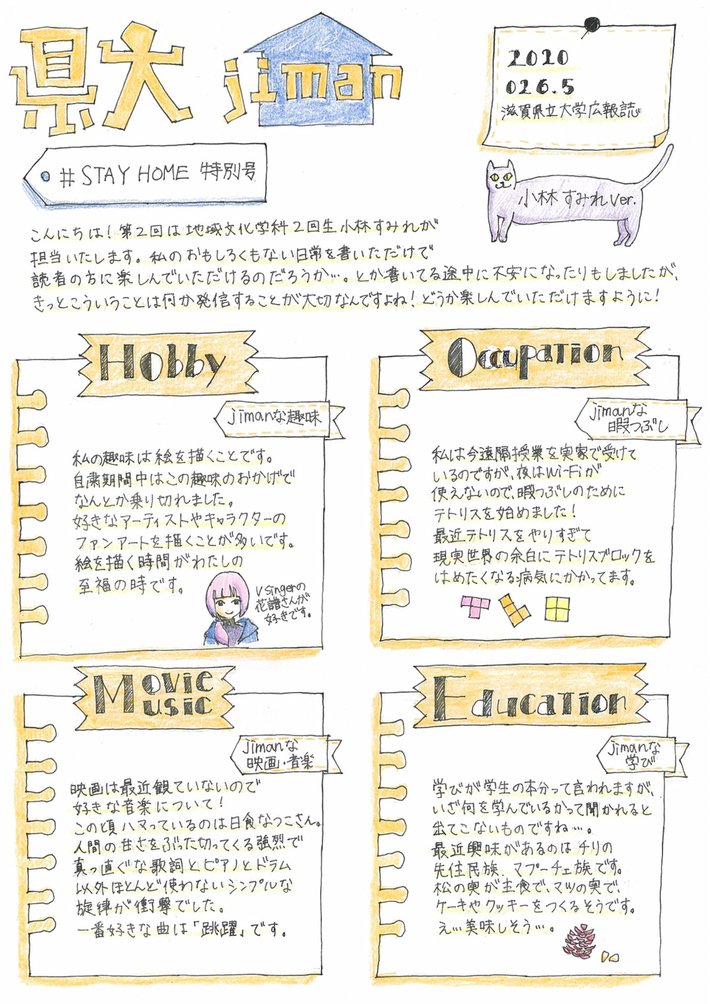 県大 jiman
2020
026.5
滋賀県立大学広報誌
#STAY HOME 特別号
小林すみれver.
こんにちは!第2回は地域文化学科2回生小林すみれが
担当いたします。私のおもしろくもない日常を書いただけで
読者の方に楽しんでいただけるのだろうか…。とか書いてる途中に不安になったりもしましたが、
きっとこういうことは何か発信することが大切なんですよね!どうか楽しんでいただけますように!
Hobby
jimanな趣味
私の趣味は絵を描くことです。
自粛期間中はこの趣味のおかげで
なんとか乗り切れました。
好きなアーティストやキャラクターの
ファンアートを描くことが多いです。
絵を描く時間がわたしの
至福の時です。
Vsingerの
花譜さんが
好きです。
Occupation
jimanな
暇つぶし
私は今遠隔授業を実家で受けて
いるのですが、夜はWi-Fiが
使えないので、暇つぶしのために
テトリスを始めました!
最近テトリスをやりすぎて
現実世界の余白にテトリスブロックを
はめたくなる病気にかかってます。
Movie
Music
jimanな
映画・音楽
映画は最近観ていないので
好きな音楽について!
この頃ハマっているのは日食なつこさん。
人間の甘さをぶった切ってくる強烈で
真っ直ぐな歌詞とピアノとドラム
以外ほとんど使わないシンプルな
旋律が衝撃でした。
一番好きな曲は「跳躍」です。
Education
jimanな
学び
学びが学生の本分って言われますが、
いざ何を学んでいるかって聞かれると
出てこないものですね…。
最近興味があるのはチリの
先住民族、マプーチェ族です。
松の実が主食で、マツの実で
ケーキやクッキーをつくるそうです。
え…美味しそう…。